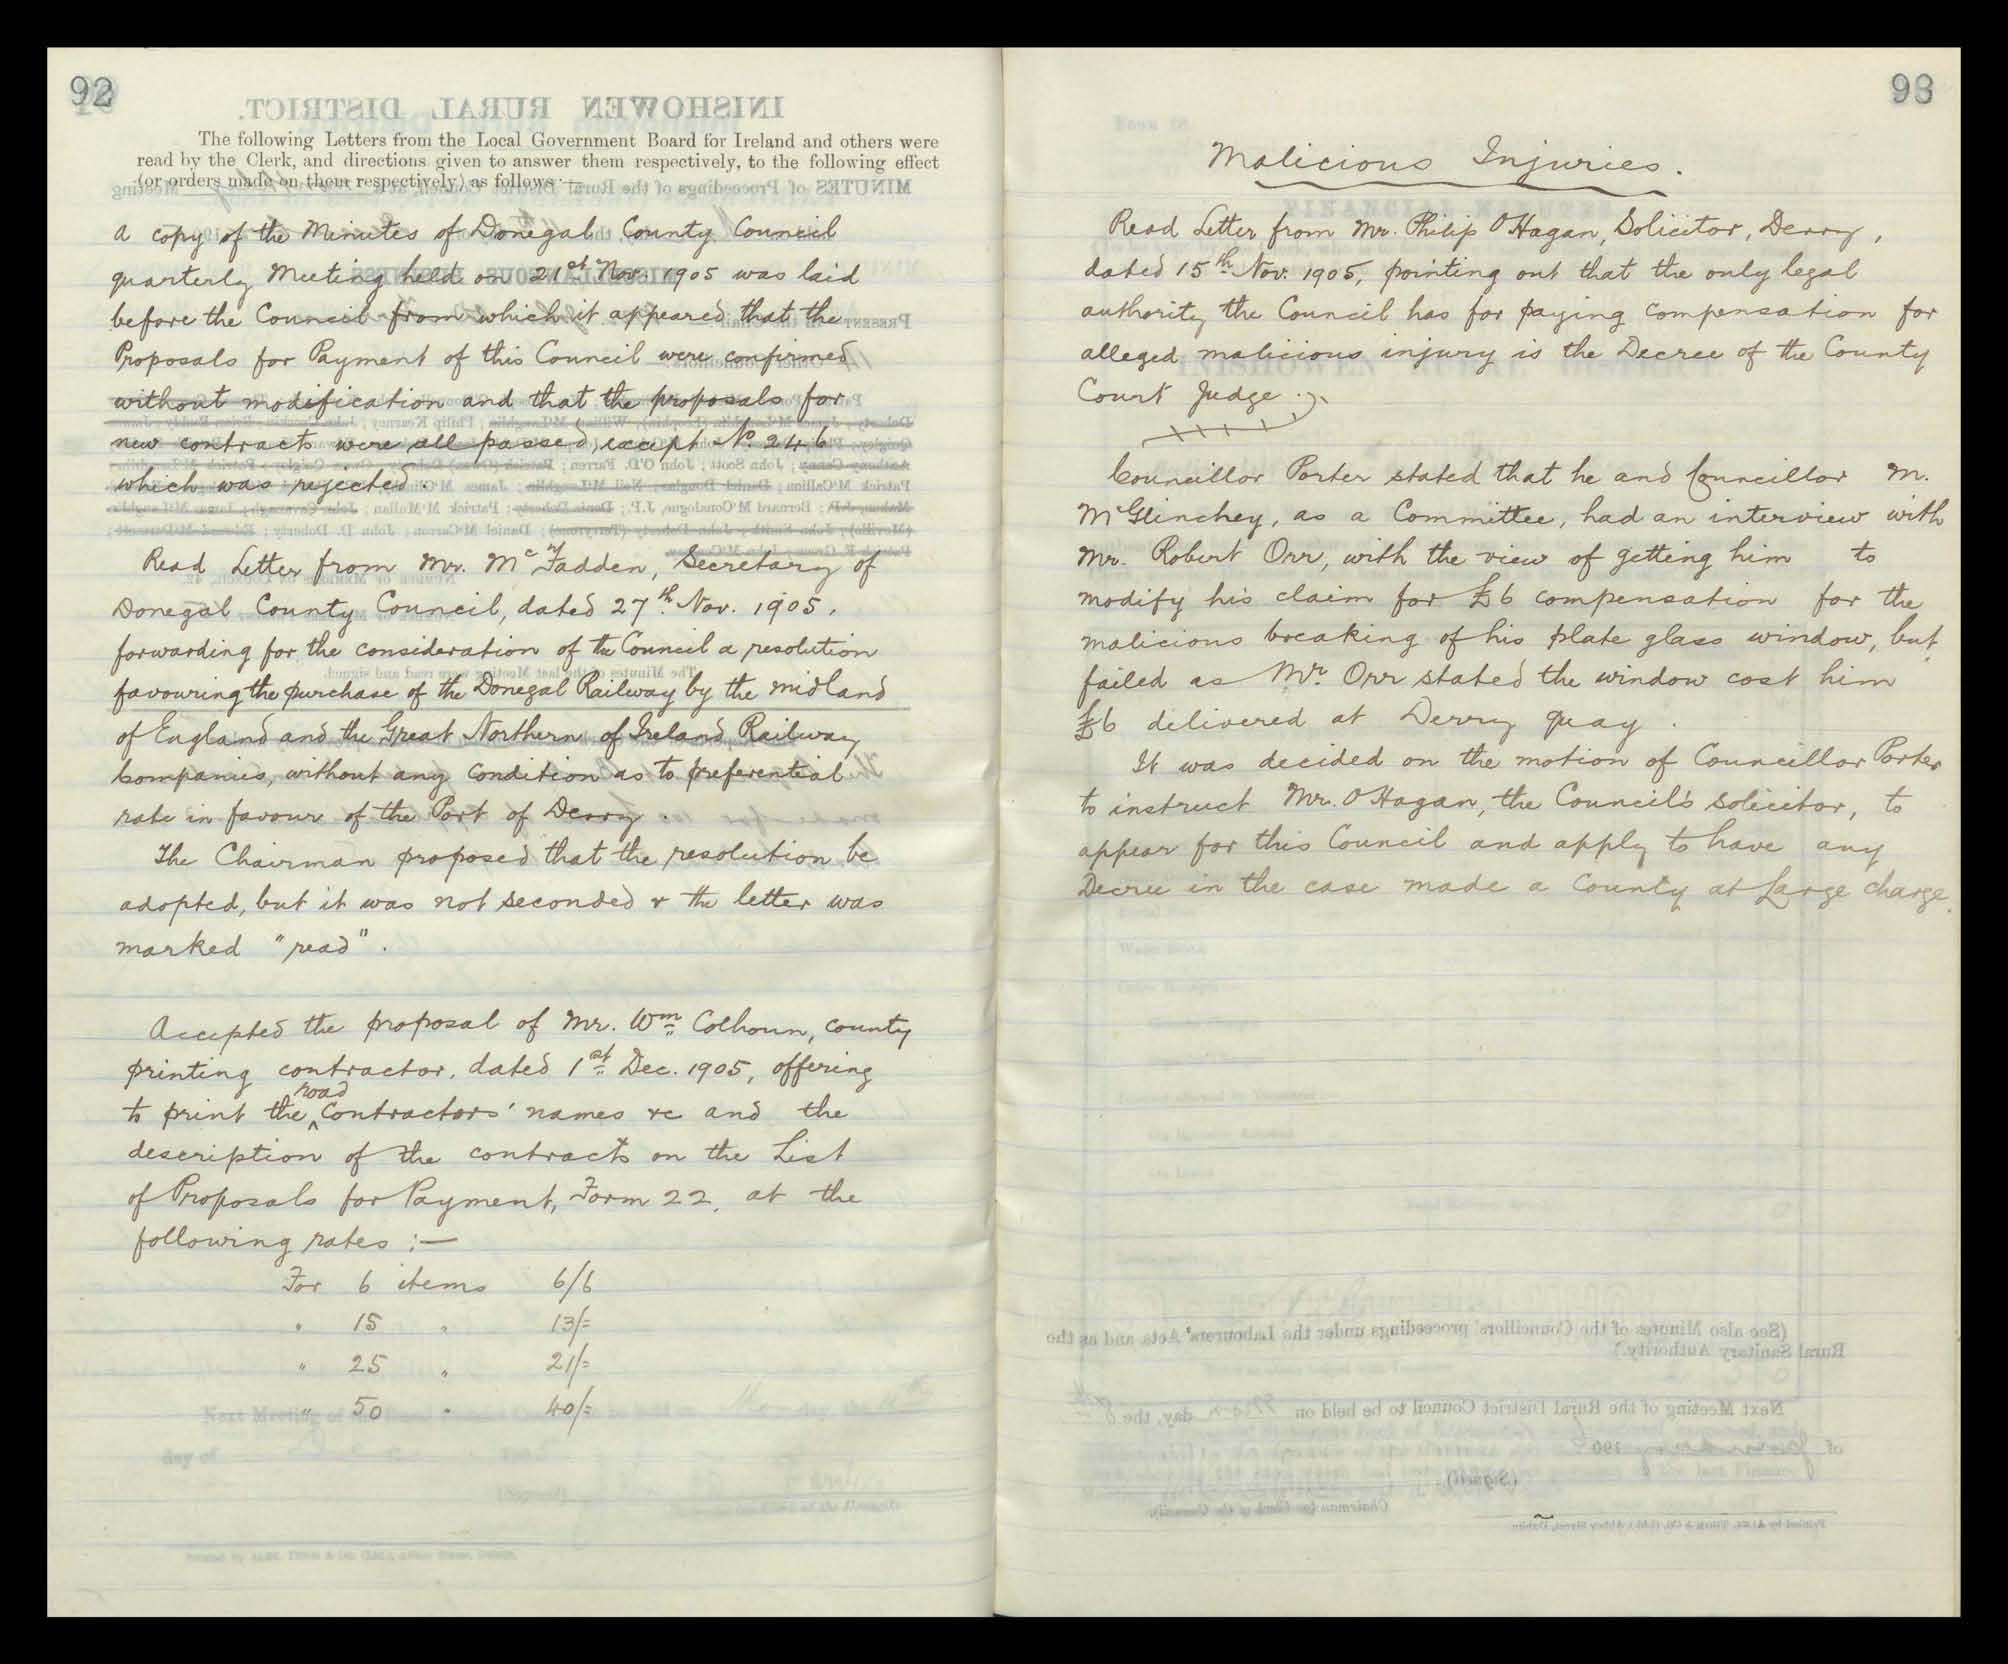 92
The following Letters from the Local Government Board for Ireland and others were
read by the Clerk, and directions given to answer them respectively, to the following effect
(or orders made on them respectively) as follows :—
A copy of the Minutes of Donegal County Council
quarterly Meeting held on 21st Nov. 1905 was laid
before the Council from which it appeared that the
Proposals for Payment of this Council were confirmed
without modification and that the proposals for
new contracts were all passed, except No. 246
which was rejected.
Read Letter from Mr. McFadden, Secretary of
Donegal County Council, dated 27th Nov. 1905,
forwarding for the consideration of the Council a resolution
favouring the purchase of the Donegal Railway by the Midland
of England and the Great Northern of Ireland Railway
Companies, without any condition as to preferential
rate in favour of the Port of Derry.
The Chairman proposed that the resolution be
adopted, but it was not seconded & the letter was
marked "read".
Accepted the proposal of Mr. Wm Colhoun, county
printing contractor, dated 1st Dec. 1905, offering
to print the road Contractors' names &c and the
description of the contracts on the List
of Proposals for Payment, Form 22, at the
following rates :—
For 6 items 6/6
" 15 " 13/=
" 25 " 21/=
" 50 " 40/=
93
Malicious Injuries.
Read Letter from Mr. Philip O'Hagan, Solicitor, Derry,
dated 15th Nov. 1905, pointing out that the only legal
authority the Council has for paying compensation for
alleged malicious injury is the Decree of the County
Court Judge.
Councillor Porter stated that he and Councillor M.
McGlinchey, as a Committee, had an interview with
Mr. Robert Orr, with the view of getting him to
modify his claim for £6 compensation for the
malicious breaking of his plate glass window, but
failed as Mr. Orr stated the window cost him
£6 delivered at Derry quay.
It was decided on the motion of Councillor Porter
to instruct Mr. O'Hagan, the Council's solicitor, to
appear for this Council and apply to have any
Decree in the case made a County at Large charge.